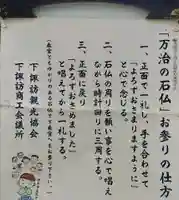 「万治の石仏」お参りの仕方
一、正面で一礼し、手を合わせて
「よろずおさまりますように」
と心で念じる。
二、石仏の周りを願い事を心で唱え
ながら時計回りに三周する。
三、正面に戻り
「よろずおさめました」
と唱えてから一礼する。
下諏訪観光協会
下諏訪商工会議所